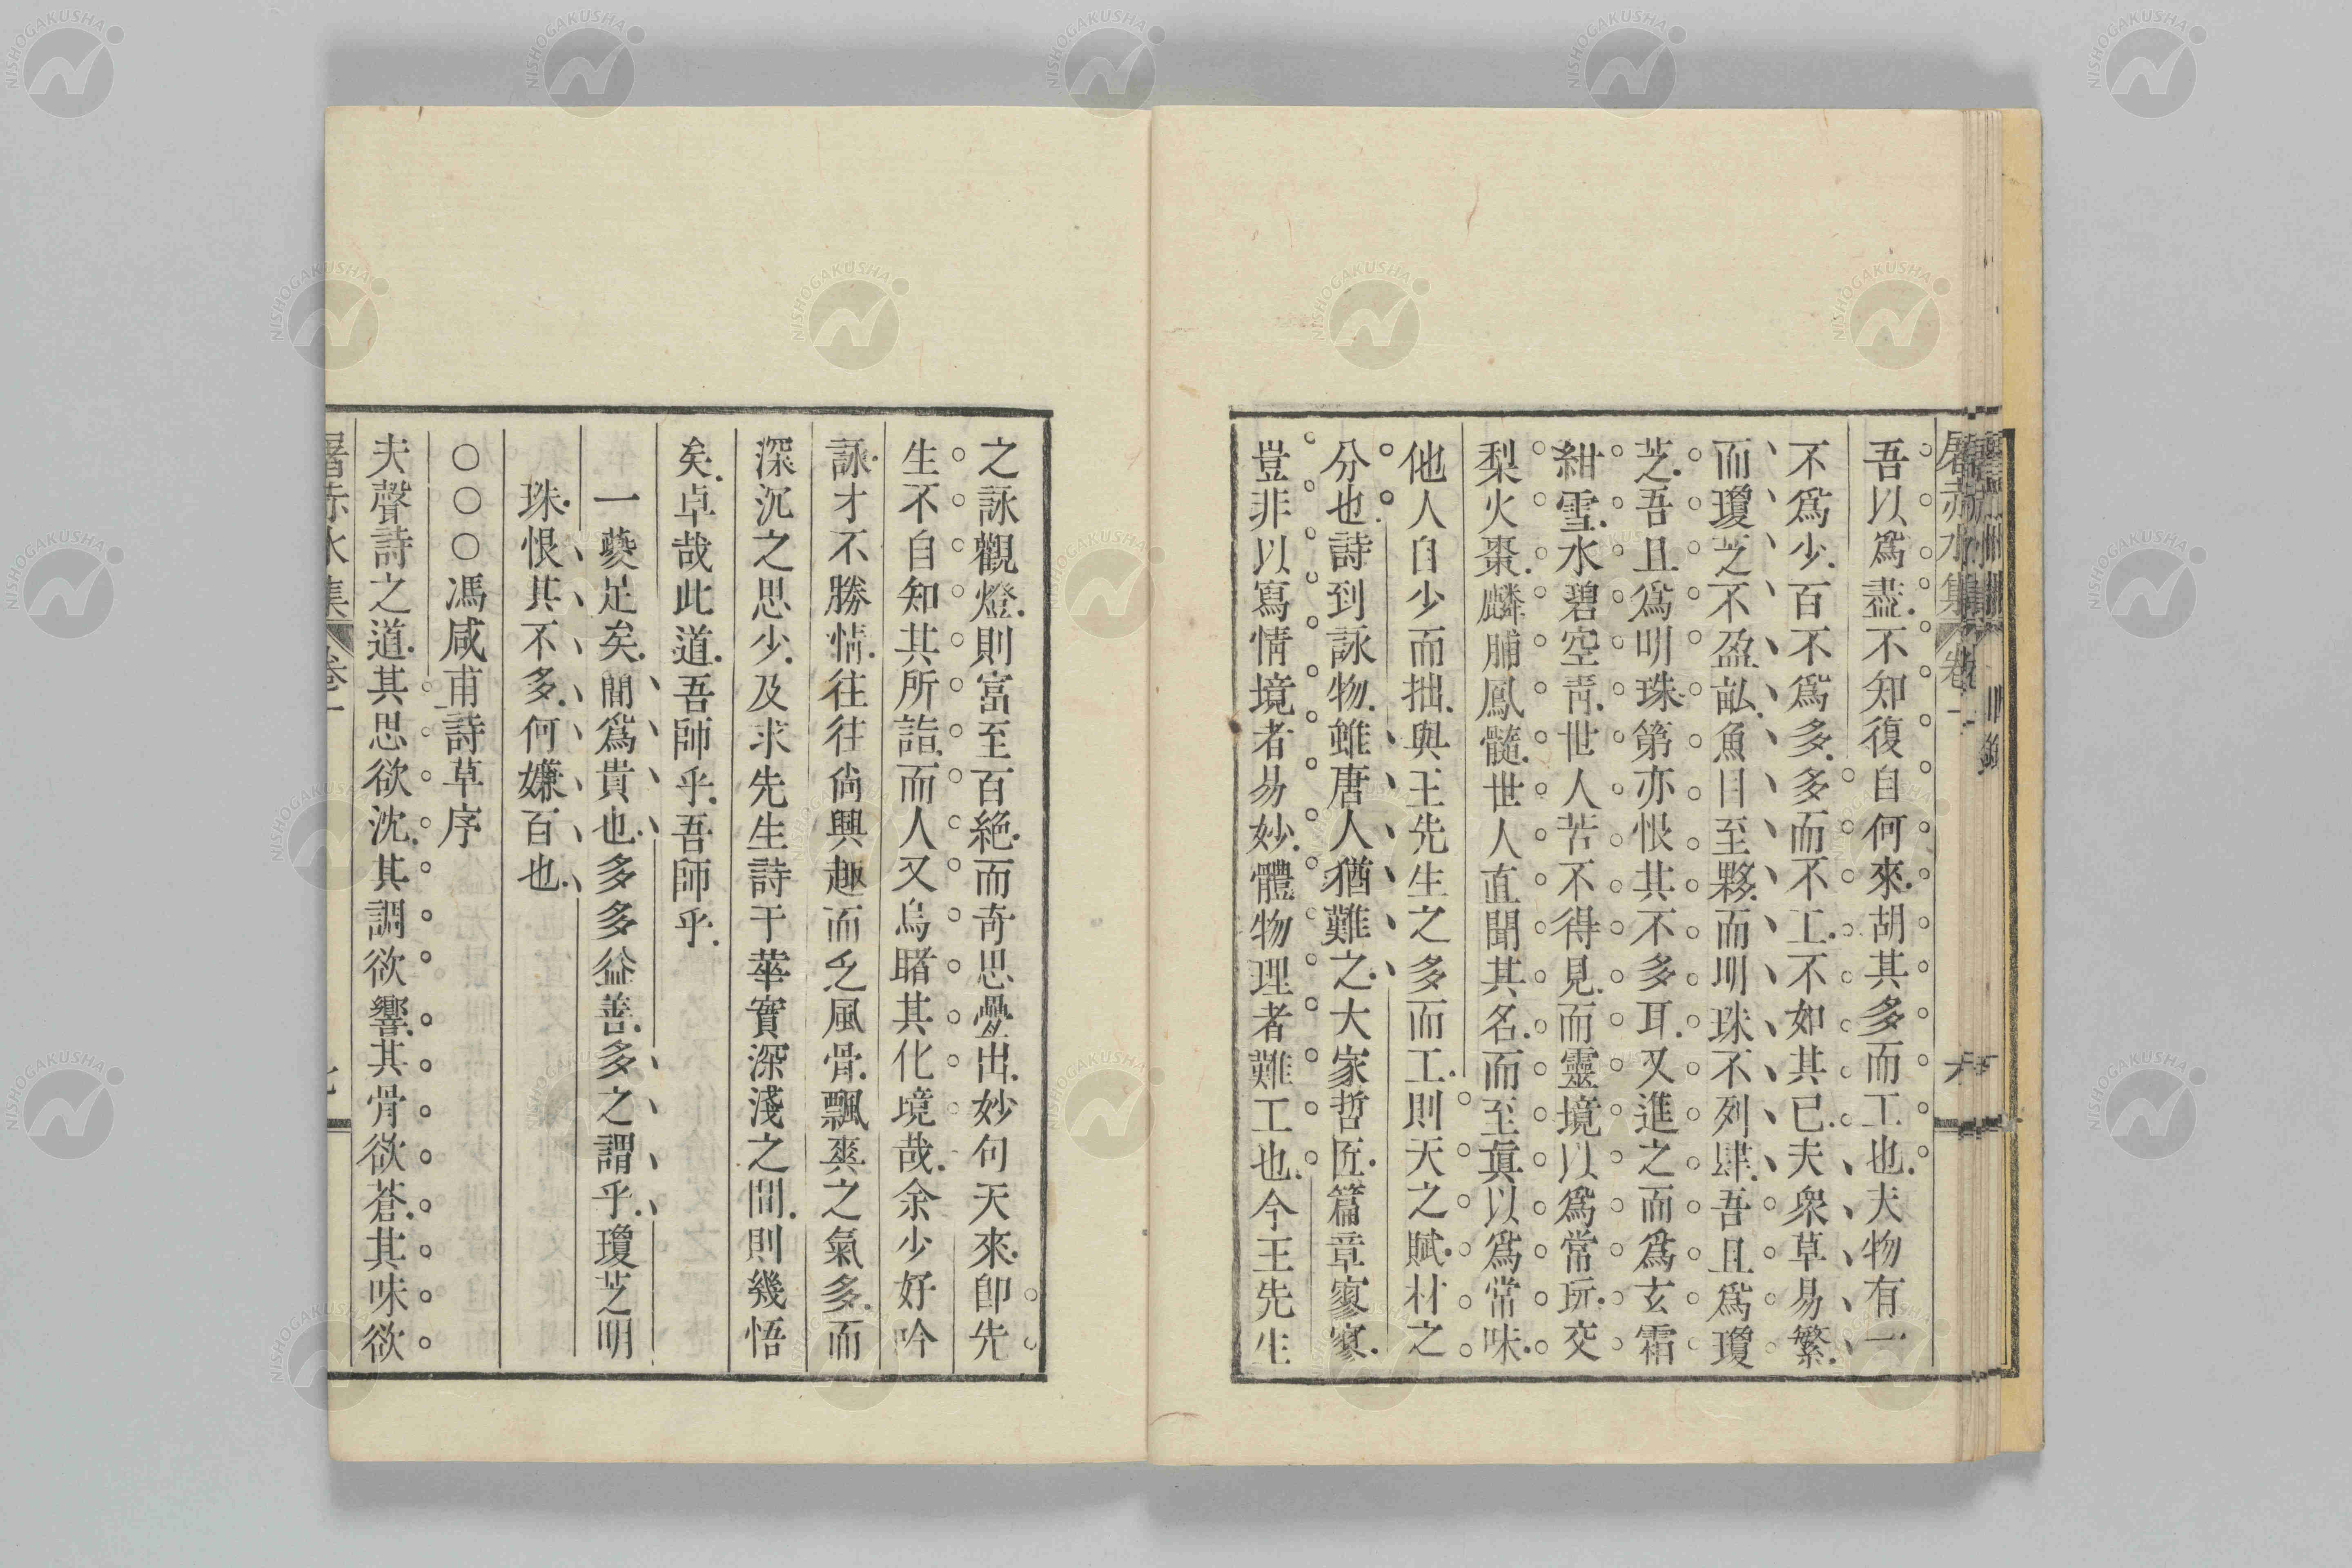 吾以爲盡.不知復自何來.胡其多而工也.夫物有一
不爲少.百不爲多.多而不工.不如其已.夫衆草易繁.
而瓊芝不盈畝.魚目至夥.而明珠不列肆.吾且爲瓊
芝.吾且爲明珠.第亦恨其不多耳.又進之而爲玄霜
紺雪.水碧空靑.世人苦不得見.而靈境以爲常玩.交
梨火棗.麟脯鳳髓.世人直聞其名.而至眞以爲常味.
他人自少而拙.與王先生之多而工.則天之賦材之
分也.詩到詠物.雖唐人猶難之.大家哲匠.篇章寥寥.
豈非以寫情境者易妙.體物理者難工也.今王先生
屠赤水集 卷一 六
之詠觀燈.則富至百絶.而奇思疊出.妙句天來.卽先
生不自知其所詣.而人又烏睹其化境哉.余少好吟
詠.才不勝情.往往尙興趣而乏風骨.飄爽之氣多.而
深沉之思少.及求先生詩于華實深淺之間.則幾悟
矣.卓哉此道.吾師乎.吾師乎.
一夔足矣.簡爲貴也.多多益善.多之謂乎.瓊芝明
珠.恨其不多.何嫌百也.
○○○馮咸甫詩草序
夫聲詩之道.其思欲沈.其調欲響.其骨欲蒼.其味欲
屠赤水集 卷一
NISHOGAKUSHA